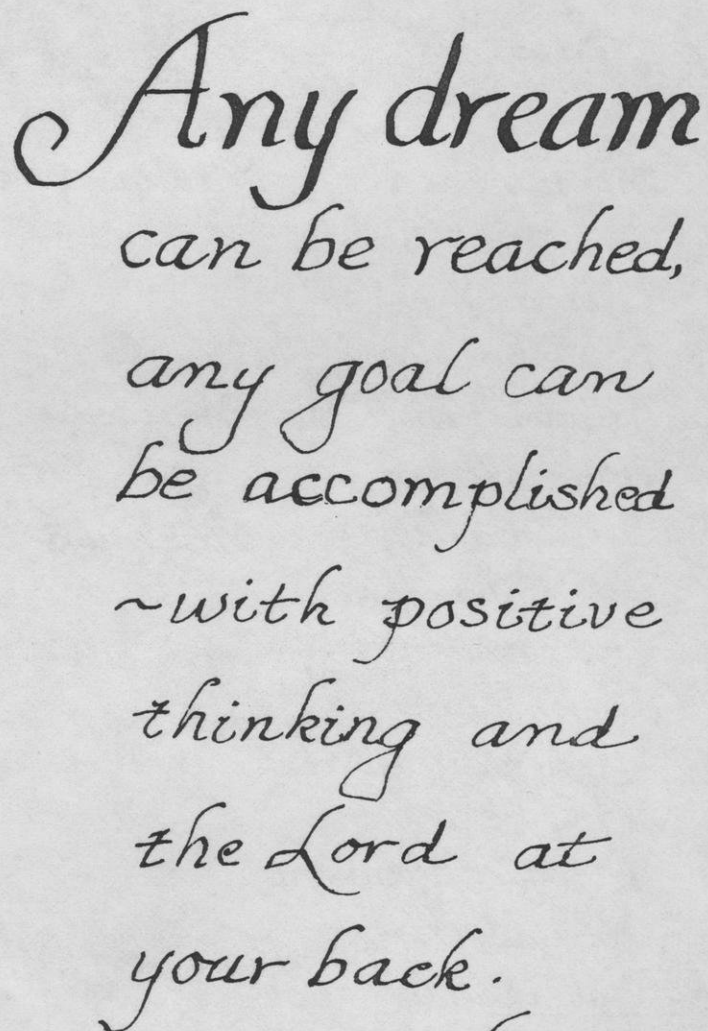 Any dream
can be reached,
any goal can
be accomplished
~with positive
thinking and
the Lord at
your back.